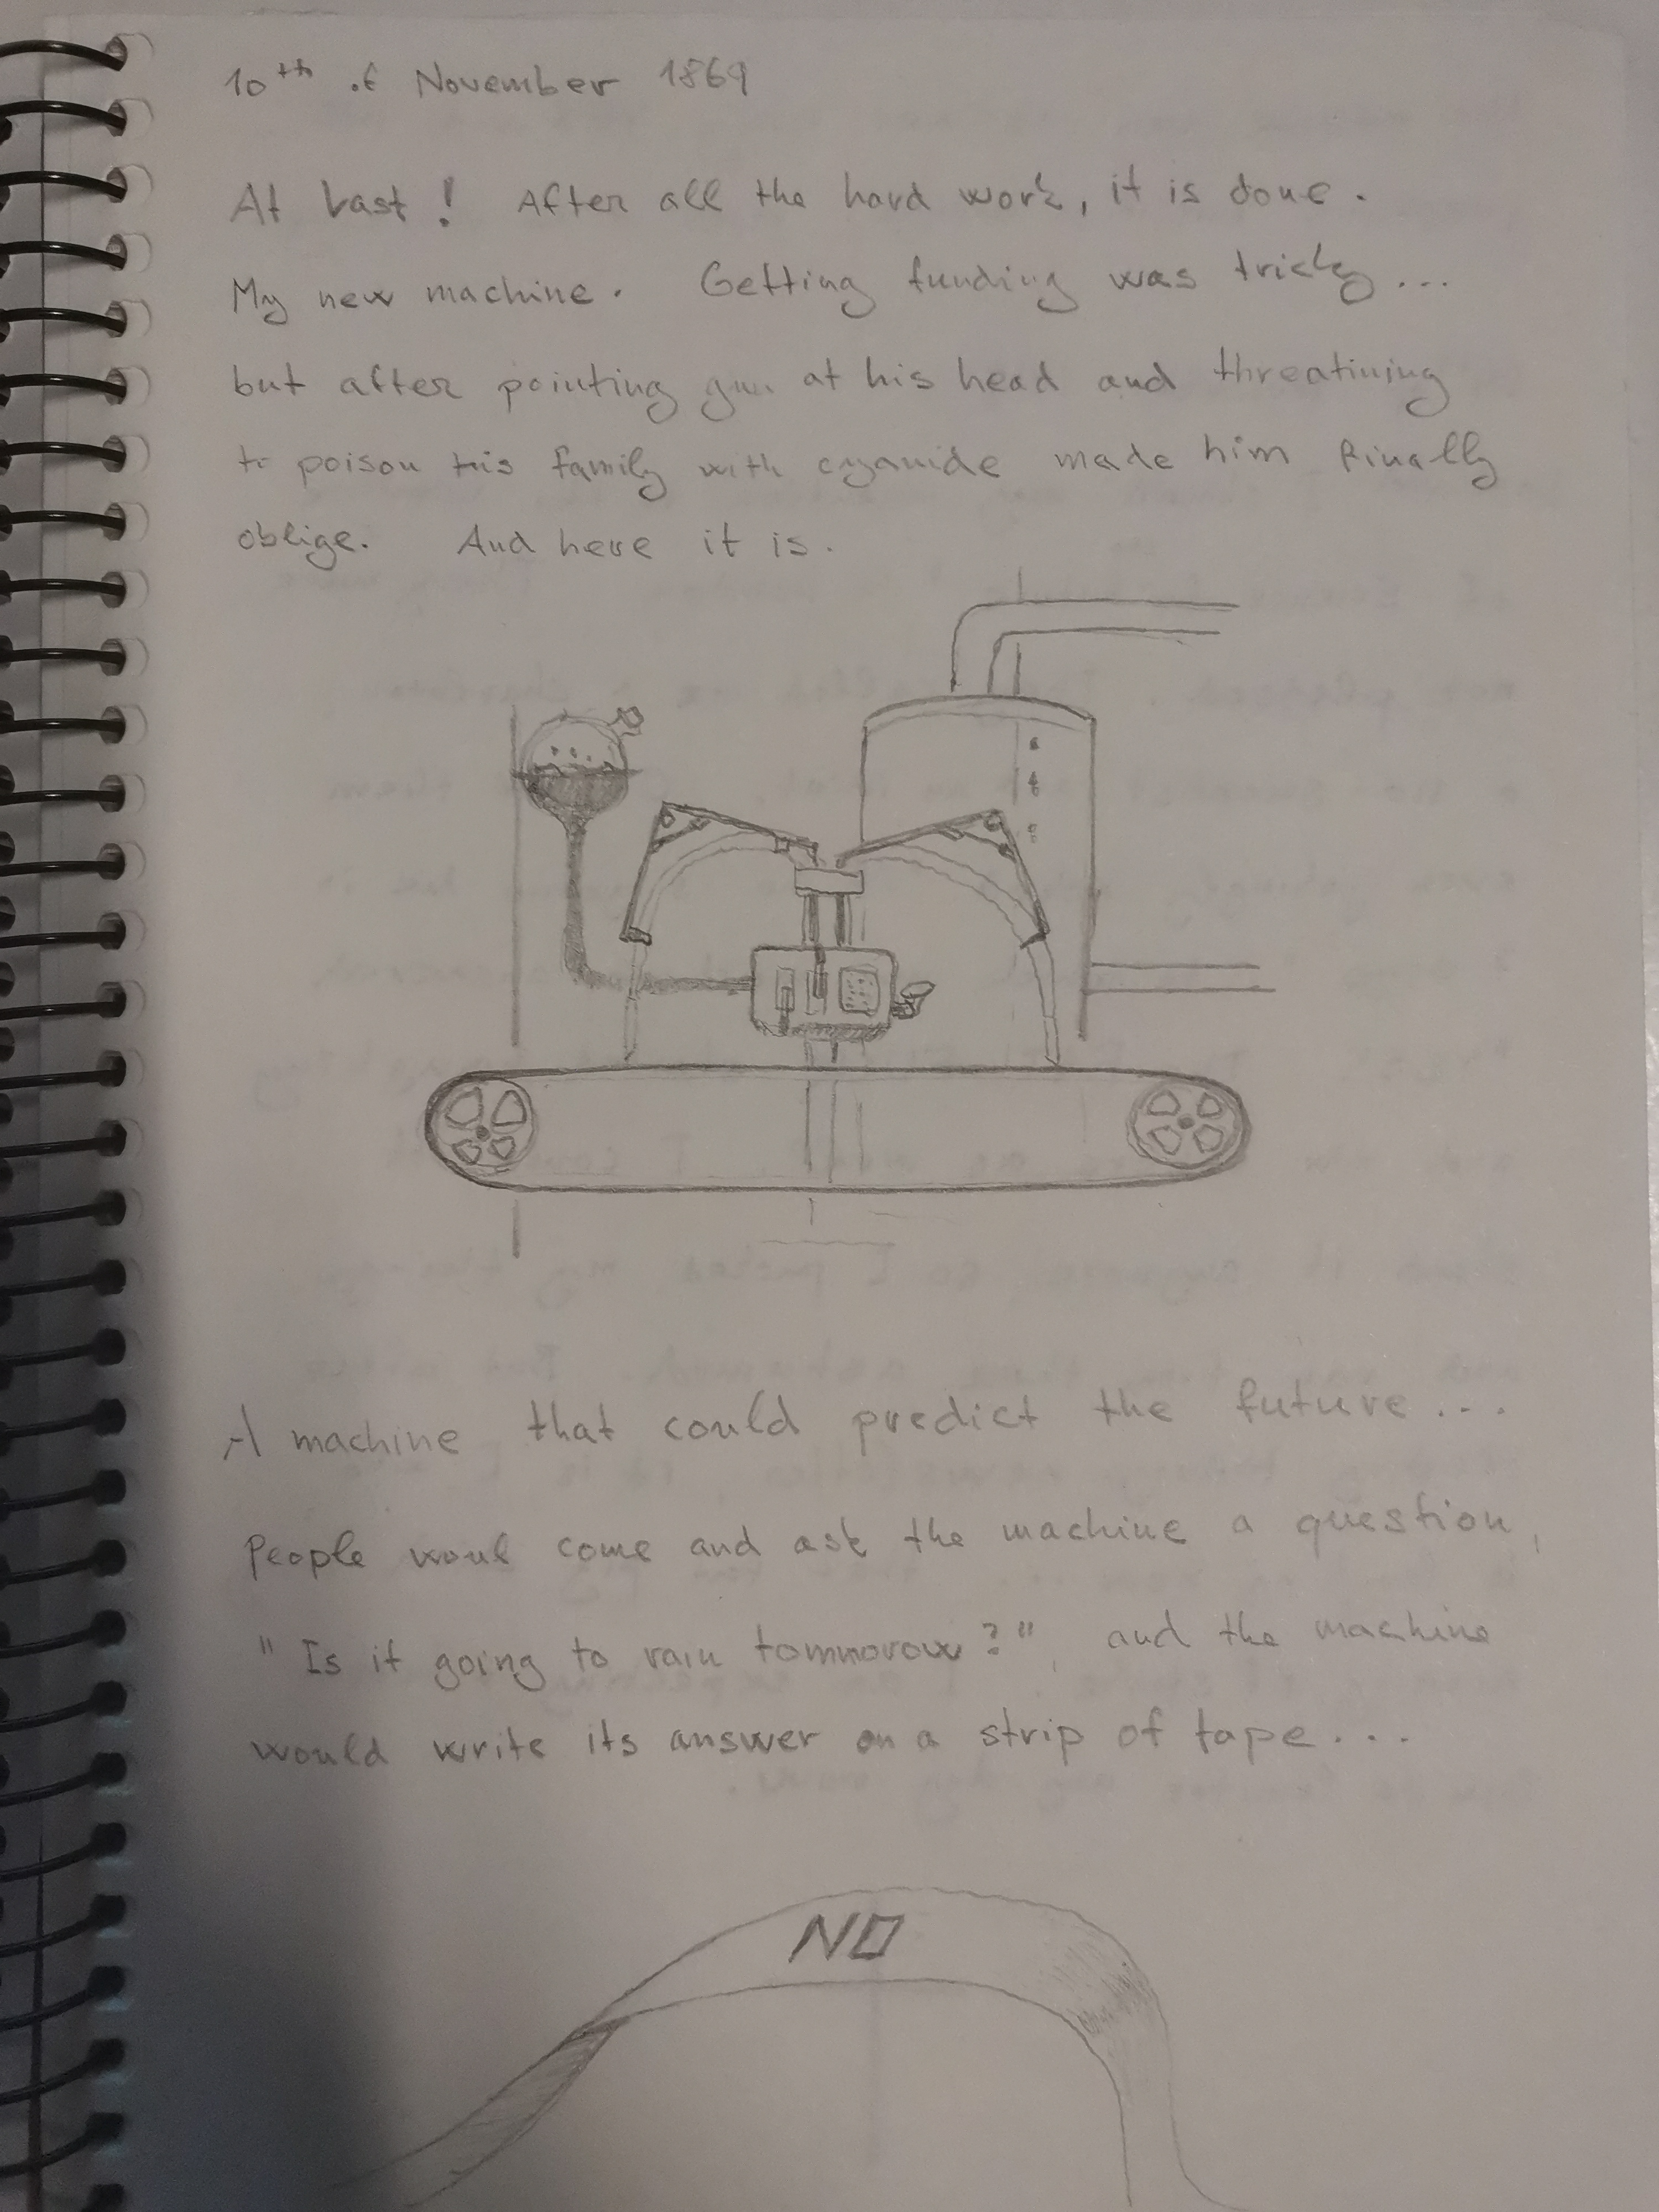 10th of November 1869
At Last! After all the hard work, it is done.
My new machine. Getting funding was tricky...
but after pointing gun at his head and threatining
to poison his family with cyanide made him finally
oblige. And here it is.
A machine that could predict the future...
People woul come and ask the machine a question,
"Is it going to rain tommorow?", and the machine
would write its answer on a strip of tape...
NO